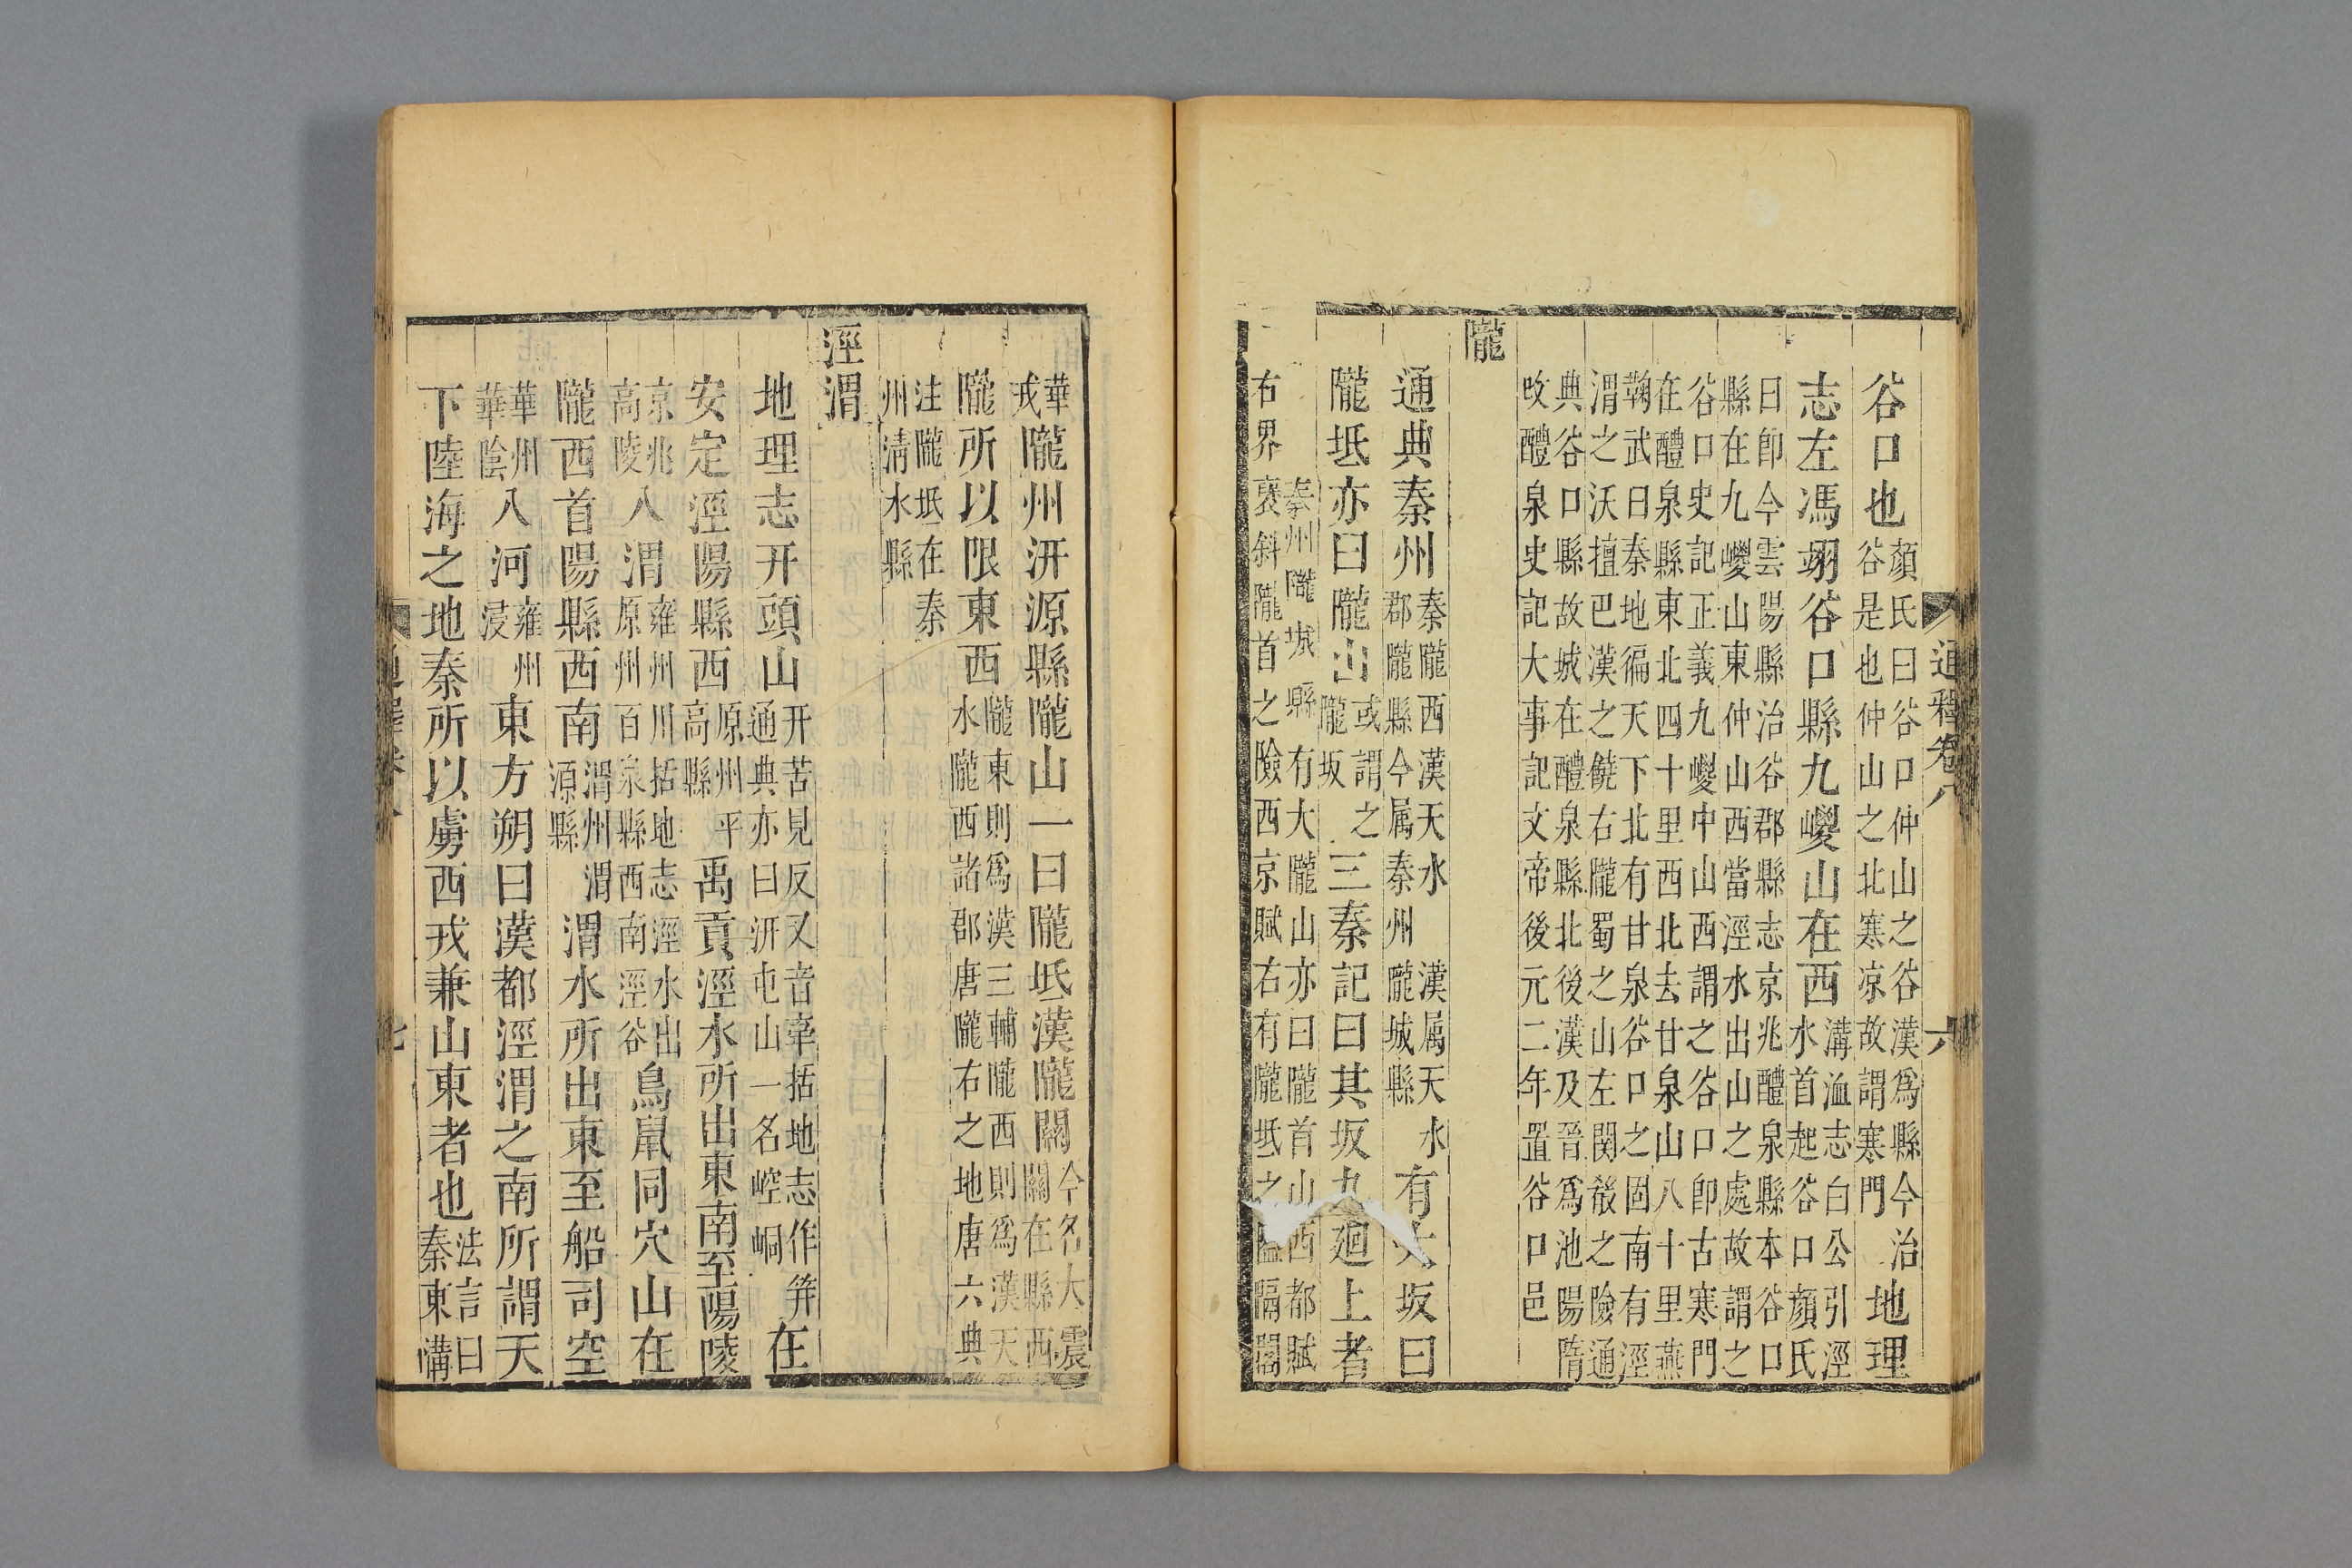 通釋卷八 六
谷口也顏氏曰谷口仲山之谷漢爲縣今治
谷是也仲山之北寒凉故謂寒門地理
志左馮翊谷口縣九嵕山在西溝洫志白公引涇
水首起谷口顏氏
曰即今雲陽縣治谷郡縣志京兆醴泉縣本谷口
縣在九嵕山東仲山西當涇水出山之處故謂之
谷口史記正義九嵕中山西謂之谷口即古寒門
在醴泉縣東北四十里西北去甘泉山八十里燕
鞠武曰秦地徧天下北有甘泉谷口之固南有涇
渭之沃擅巴漢之饒右隴蜀之山左関殽之險通
典谷口縣故城在醴泉縣北後漢及晉爲池陽隋
改醴泉史記大事記文帝後元二年置谷口邑
隴
通典秦州秦隴西漢天水
郡隴縣今属秦州隴城縣漢属天水有大坂曰
隴坻亦曰隴山或謂之
隴坂三秦記曰其坂九廻上者
秦州隴城縣有大隴山亦曰隴首山西都賦
右界褒斜隴首之險西京賦右有隴坻之隘隔閡
華隴州汧源縣隴山一曰隴坻漢隴關今名大震
戎關在縣西
隴所以限東西隴東則爲漢三輔隴西則爲漢天
水隴西諸郡唐隴右之地唐六典
注隴坻在秦
州清水縣
涇渭
地理志幵頭山幵苦見反又音牽括地志作筓
通典亦曰汧屯山一名崆峒在
安定涇陽縣西原州平
高縣禹貢涇水所出東南至陽陵
京兆
高陵入渭雍州川括地志涇水出
原州百泉縣西南涇谷鳥鼠同穴山在
隴西首陽縣西南渭州渭
源縣渭水所出東至船司空
華州
華陰入河雍州
浸東方朔曰漢都涇渭之南所謂天
下陸海之地秦所以虜西戎兼山東者也法言曰
秦東溝